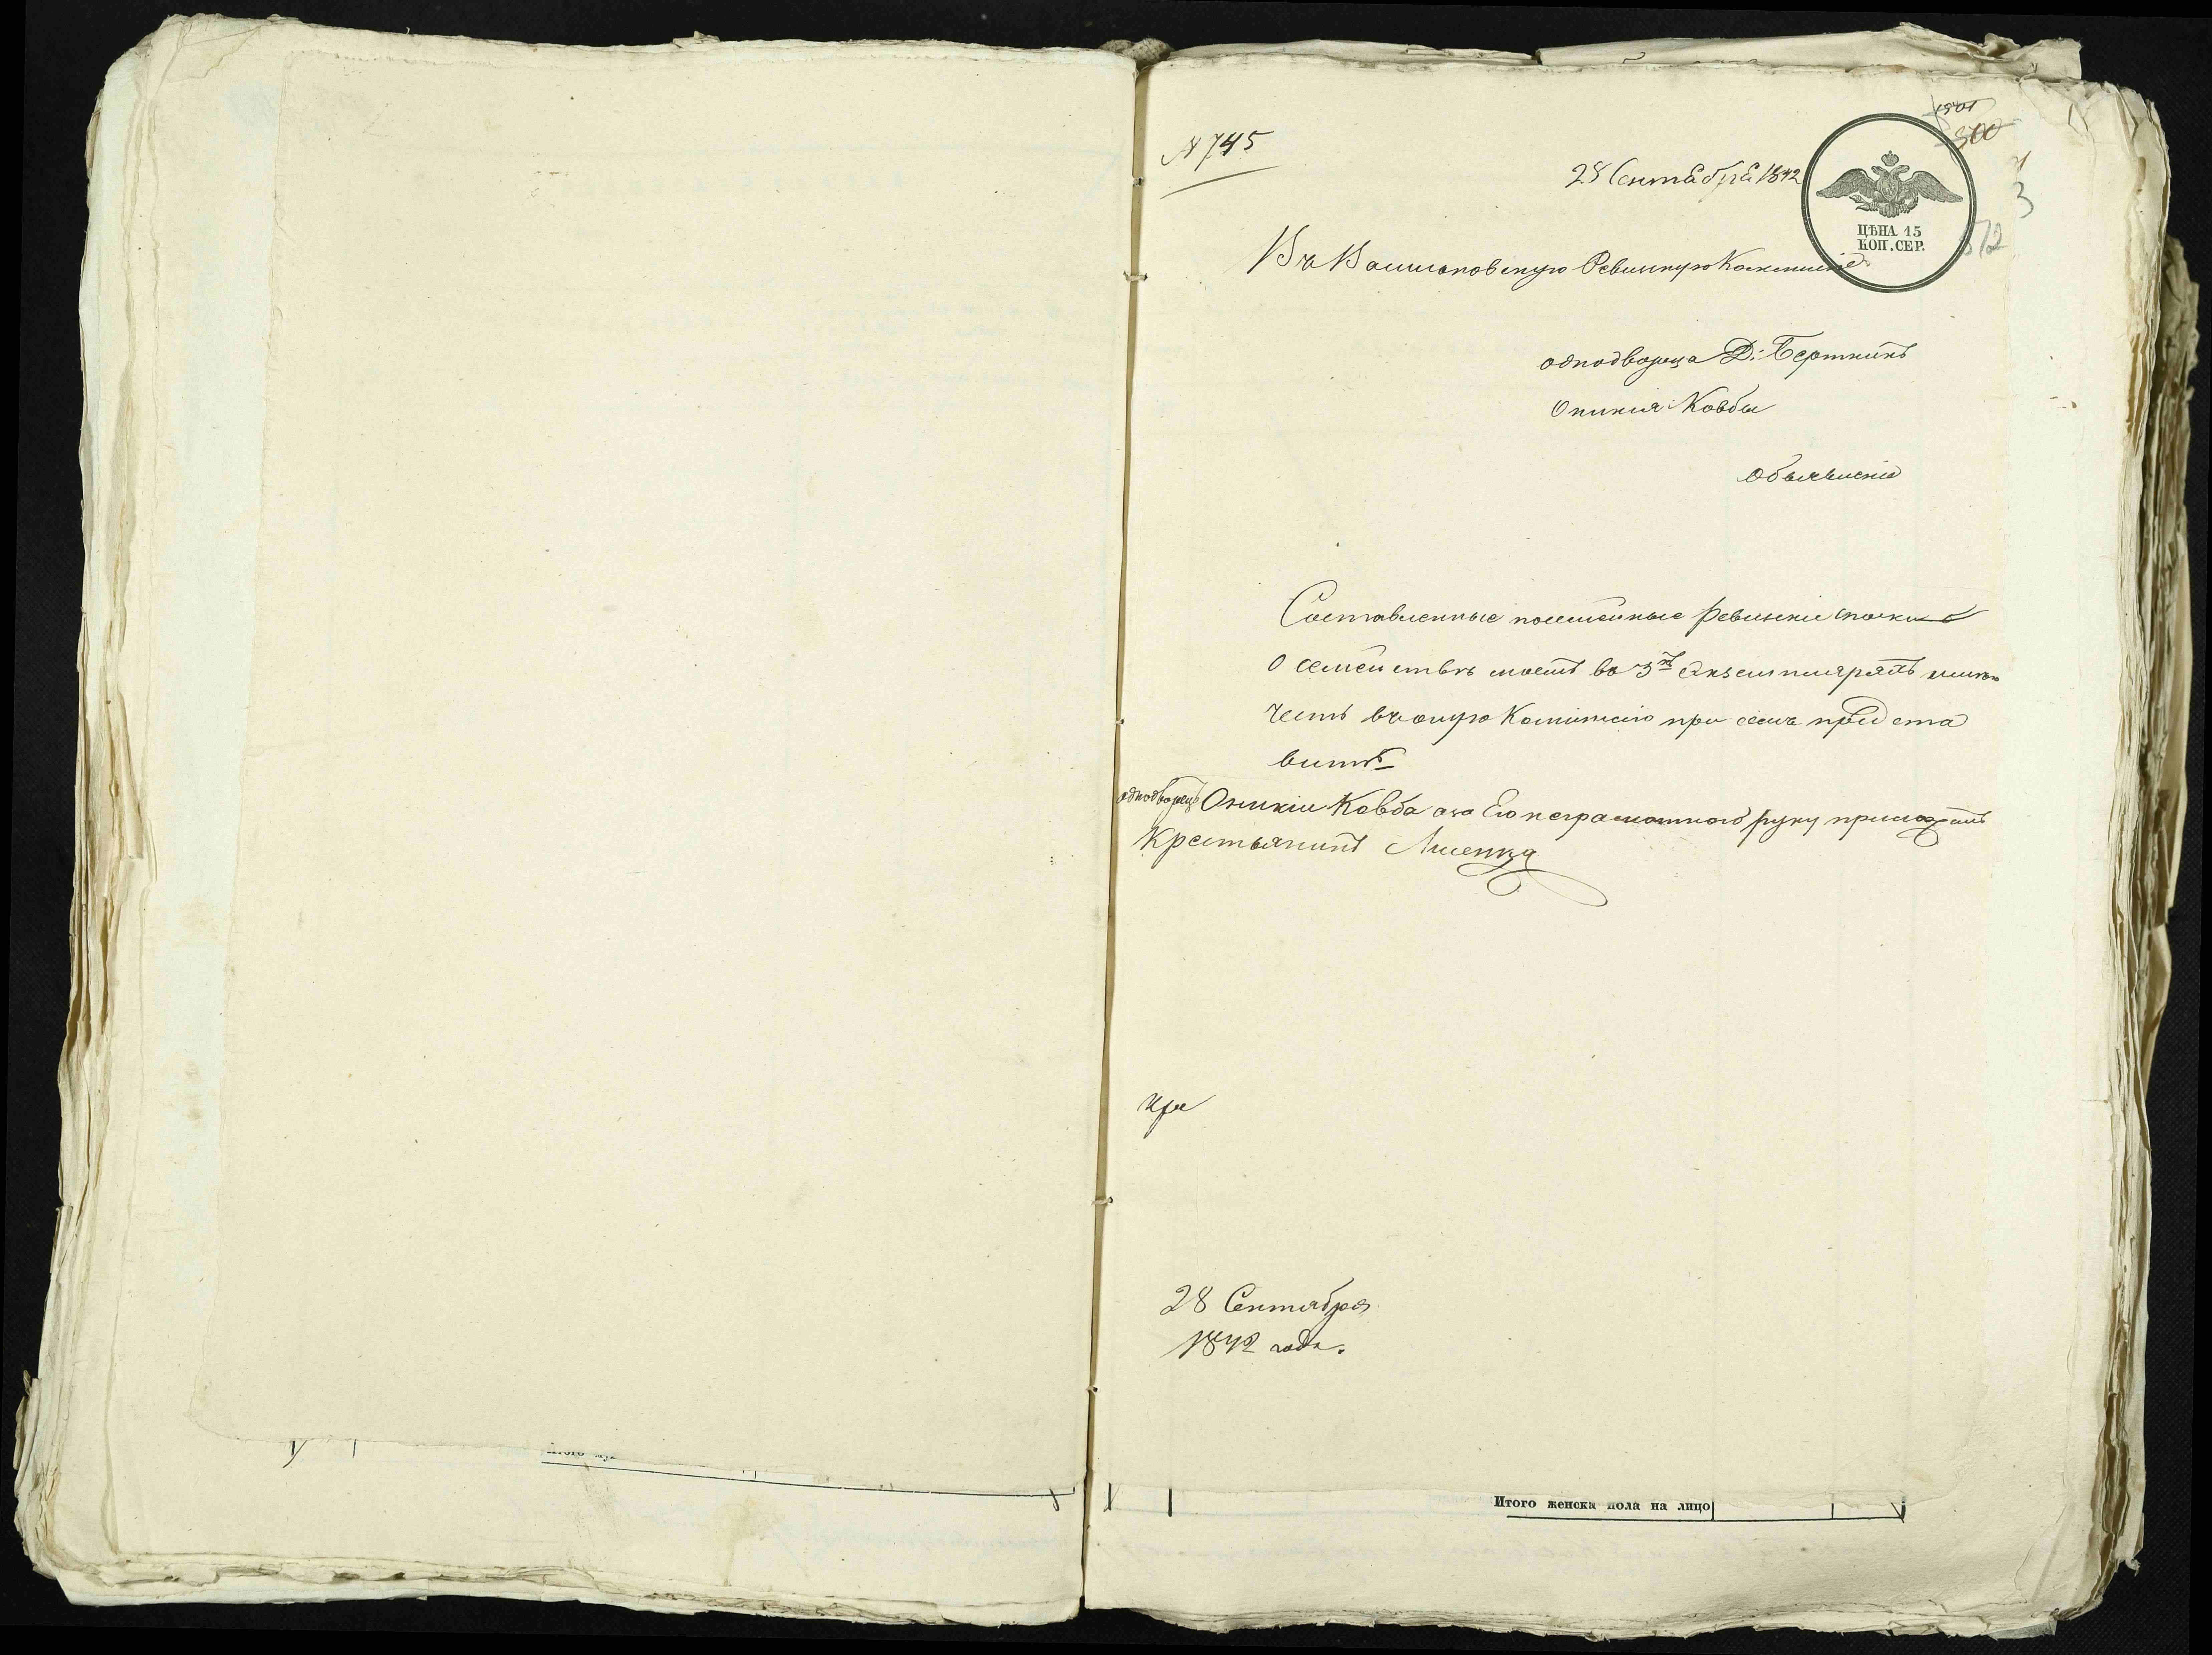 № 745
1301
300
28 Сентября 1842
3
372
ЦѢНА 15
КОП. СЕР.
Въ Ревизкую Коммисію
однодворца Д:
Оникія Ковбы
Объявленіе
Составленные посемейные Ревизкіе скаски
О семействѣ моемъ въ 3хъ Экземплярахъ имѣю
честь въ оную Коммисію при семъ предста
вить
однодворецъ Оникій Ковба а за Его неграмотного руку приложилъ
Крестьянинъ
28 Сентября
1842 года.
Итого женска пола на лицо